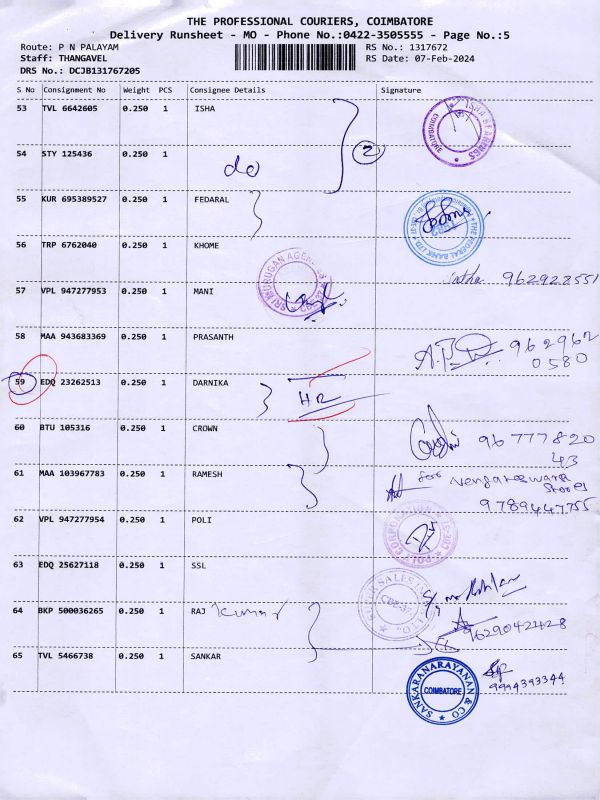 THE PROFESSIONAL COURIERS, COIMBATORE
Delivery Runsheet - MO - Phone No.:0422-3505555 - Page No.:5
Route: P N PALAYAM
RS No.: 1317672
Staff: THANGAVEL
RS Date: 07-Feb-2024
DRS No.: DCJB131767205
S No Consignment No Weight PCS Consignee Details Signature
53 TVL 6642605 0.250 1 ISHA
ISHA BEARINGS COIMBATORE
54 STY 125436 0.250 1
do 2
55 KUR 695389527 0.250 1 FEDARAL
THE FEDERAL BANK LTD.
56 TRP 6762040 0.250 1 KHOME
SRI MURUGAN AGENCIES
57 VPL 947277953 0.250 1 MANI
58 MAA 943683369 0.250 1 PRASANTH
962962
0580
59 EDQ 23262513 0.250 1 DARNIKA
HR
60 BTU 105316 0.250 1 CROWN
96 777820
43
61 MAA 103967783 0.250 1 RAMESH
for Vengateswara
Stores
9789447755
62 VPL 947277954 0.250 1 POLI
POLI CORPORATION
63 EDQ 25627118 0.250 1 SSL
64 BKP 500036265 0.250 1 RAJ Kumar
SALES
CBE-37
9629042428
65 TVL 5466738 0.250 1 SANKAR
9994393344
SANKARANARAYANAN & CO
COIMBATORE